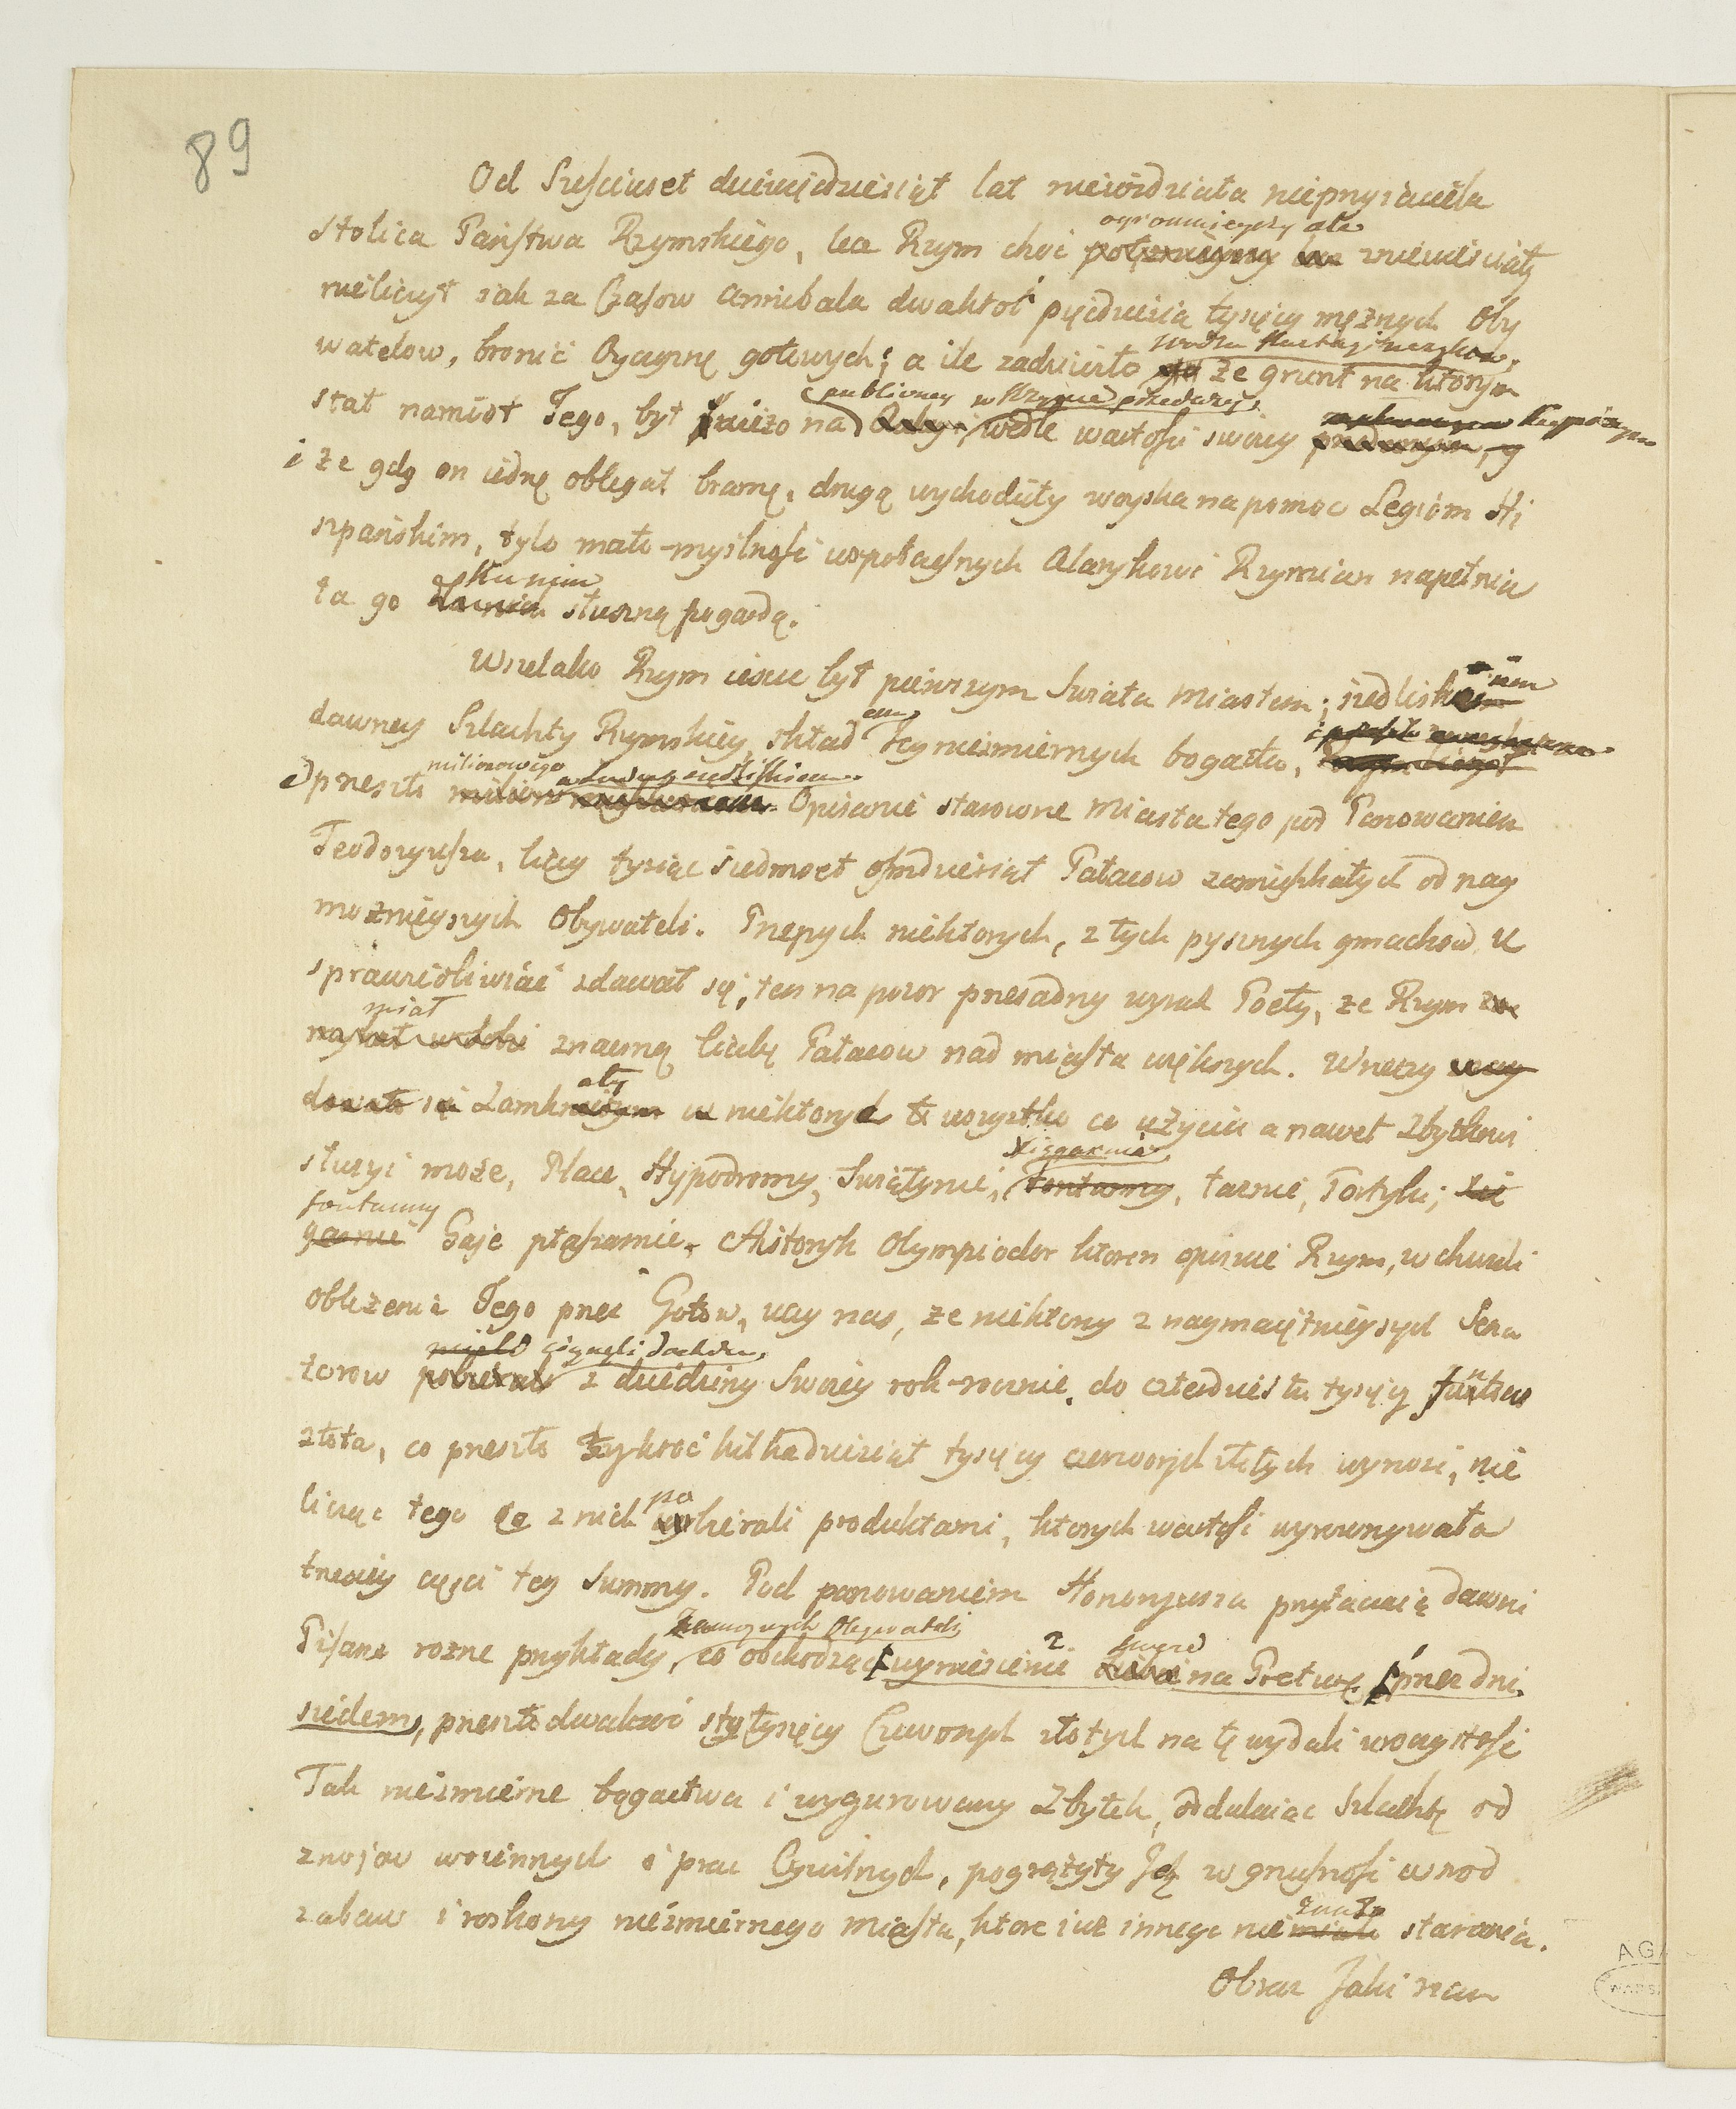 89
Od Sześciuset dziewiędziesiąt lat niewidziała nieprzyiaciela
ogromnieyszy ale
stolica Państwa Rzymskiego, lecz Rzym choć potężnieyszy lecz zniewieściały
nieliczył iak za Czasow Annibala dwakroć pięcdziesia tysięcy mężnych Oby
watelow, bronić Oyczyznę gotowych; a ile zadziwiło że grunt na ktorym
publiczney w Rzymie przedaży
stał namiot Jego, był swieżo na wedle wartości swoiey
i że gdy on iednę oblegał bramę, drugą wychodziły woyska na pomoc Legiom Hi
szpańskim, tylo mało-myslność wspołczesnych Alarykowi Rzymian napełnia
ku nim
ła go słuszną pogardą.
Wszelako Rzym ieszcze był pierwszym Swiata Miastem; siedliskiem
dawney Szlachty Rzymskiey, skład em Jey niezmiernych bogactw,
milionowego ludu siedliskiem
przeszło milion Opisanie starowne Miasta tego pod Panowaniem
Teodozyusza, liczy tysiąc siedmset ośmdziesiąt Pałacow zamieszkałych od nay
możnieyszych Obywateli. Przepych niektorych, z tych pysznych gmachow u
sprawiedliwiać zdawał się, ten na pozor przesadny wyraz Poety, że Rzym
miał
znaczną liczbę Pałacow nad miasta większych. Wnętrzy
ały
dowało się Zamkn niektorych to wszystko co użyciu a nawet Zbytkowi
Xięgarnie
służyć może, Place, Hypodromy, Swiątynie, fontanny, łaznie, Portyki; xię
fontanny
garnie Gaje ptaszarnie. Historyk Olympiodor ktoren opisuie Rzym, w chwili
oblężenia Jego przez Gotow, uczy nas, że niektorzy z naymaiętnieyszych Sena
mieli ciągnęli dochodu
torow pobierali z dziedziny Swoiey rok-rocznie, do czterdziestu tysięcy funtow
złota, co przeszło trzykroć kilkadziesiąt tysięcy czerwonych złotych wynosi, nie
po
licząc tego co z nich wybierali produktami, ktorych wartość wyrownywała
trzeciey części tey Summy. Pod panowaniem Honoryusza przytaczaią dawni
Obywateli
Pisarze rożne przykłady, co obchodząc wyniesienie na Preturę przez dni
siedem, przeszło dwakroć sto tysięcy Czerwonych złotych na tę wydali uroczystość
Tak niezmierne bogactwa i wygurowany Zbytek, oddalaiąc Szlachtę od
znojow woiennych i prac Cywilnych, pogrążyły Ją w gnusności wsrod
znało
zabaw i roskoszy niezmiernego Miasta, ktore iuż innego nie miało starania.
Obraz Jaki nam